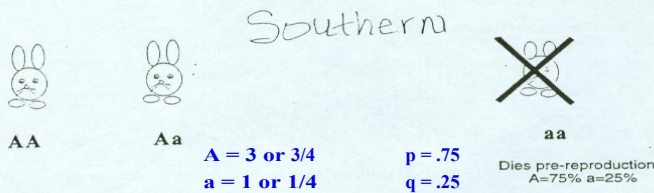 Southern
AA
Aa
aa
A = 3 or 3/4
p = .75
a = 1 or 1/4
q = .25
Dies pre-reproduction
A=75% a=25%